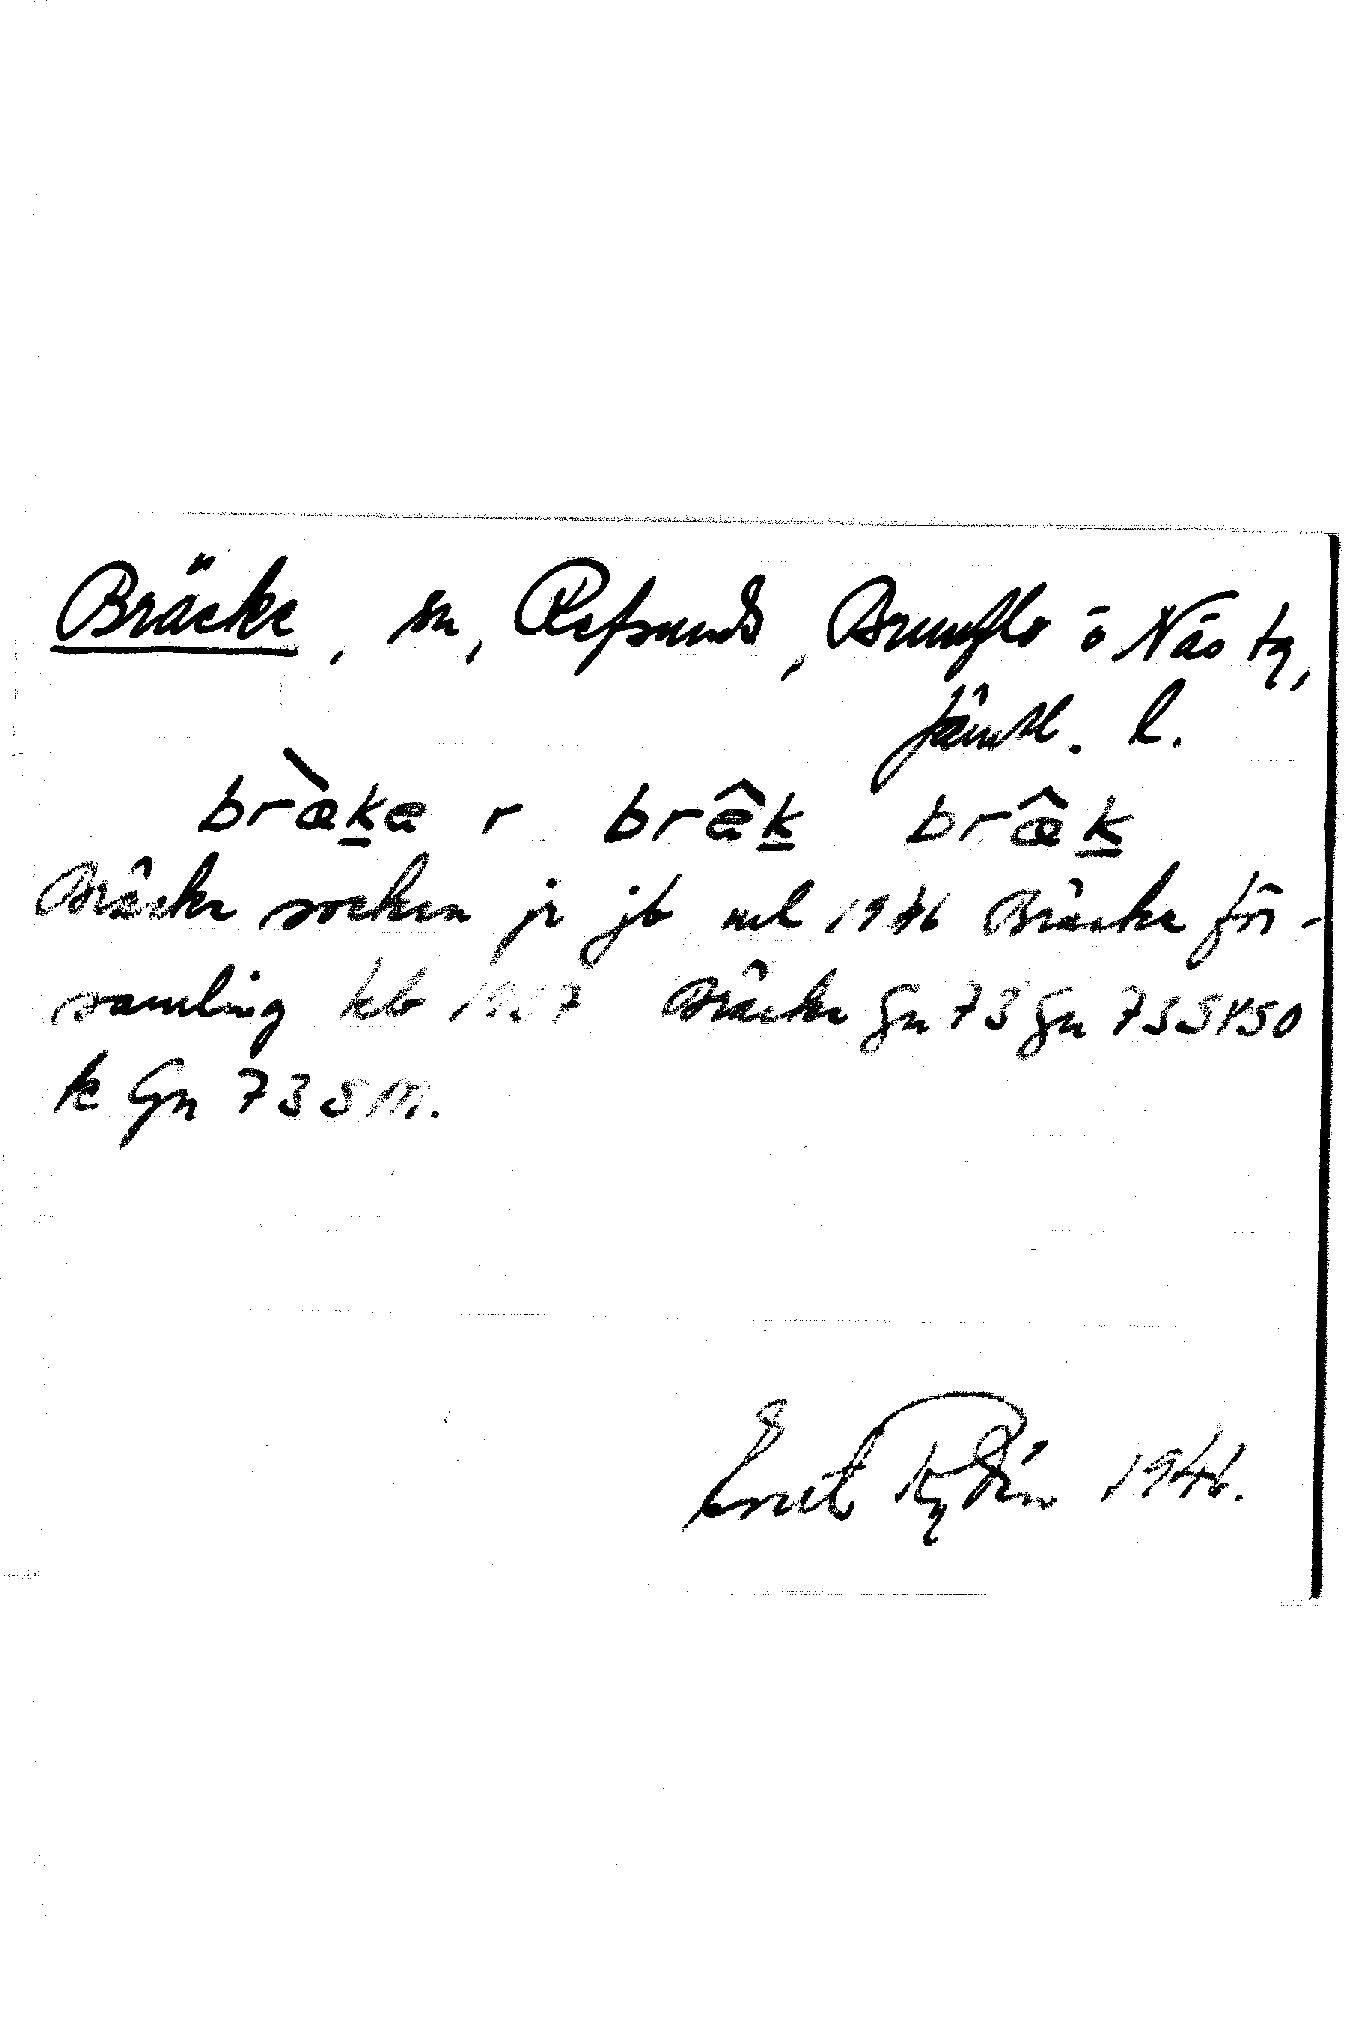 Bräcke, sn, Refsunds, Brunflo o Näs tg,
Jämtl. l.
bràke r brêk brœ̂k
Bräcke socken jr jb ml 1946 Bräcke för-
samling kb 1927 Bräcke Gn 73 Gn 73SV50
k Gn 73S
Ernst 1946.